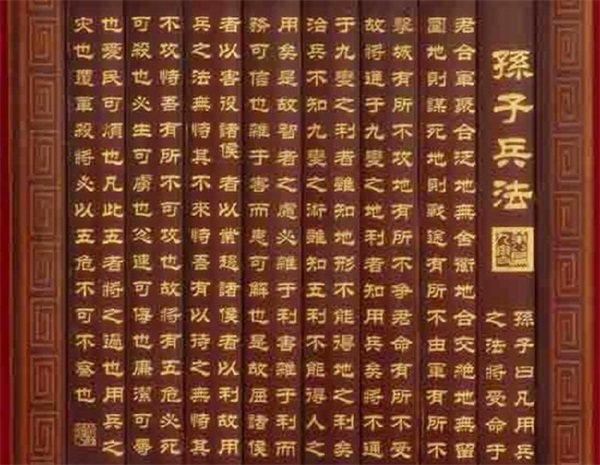 孫子兵法
孫子曰凡用兵
之法將受命于
君合軍聚合泛地無舍衢地合交絶地無留
圍地則謀死地則戰途有所不由軍有所不
擊城有所不攻地有所不爭君命有所不受
故將通于九變之地利者知用兵矣將不通
于九變之利者雖知地形不能得地之利矣
治兵不知九變之術雖知五利不能得人之
用矣是故智者之慮必雜于利害雜于利而
務可信也雜于害而患可解也是故屈諸侯
者以害役諸侯者以業趨諸侯者以利故用
兵之法無恃其不來恃吾有以待之無恃其
不攻恃吾有所不可攻也故將有五危必死
可殺也必生可虜也忿速可侮也廉潔可辱
也愛民可煩也凡此五者將之過也用兵之
災也覆軍殺將必以五危不可不察也